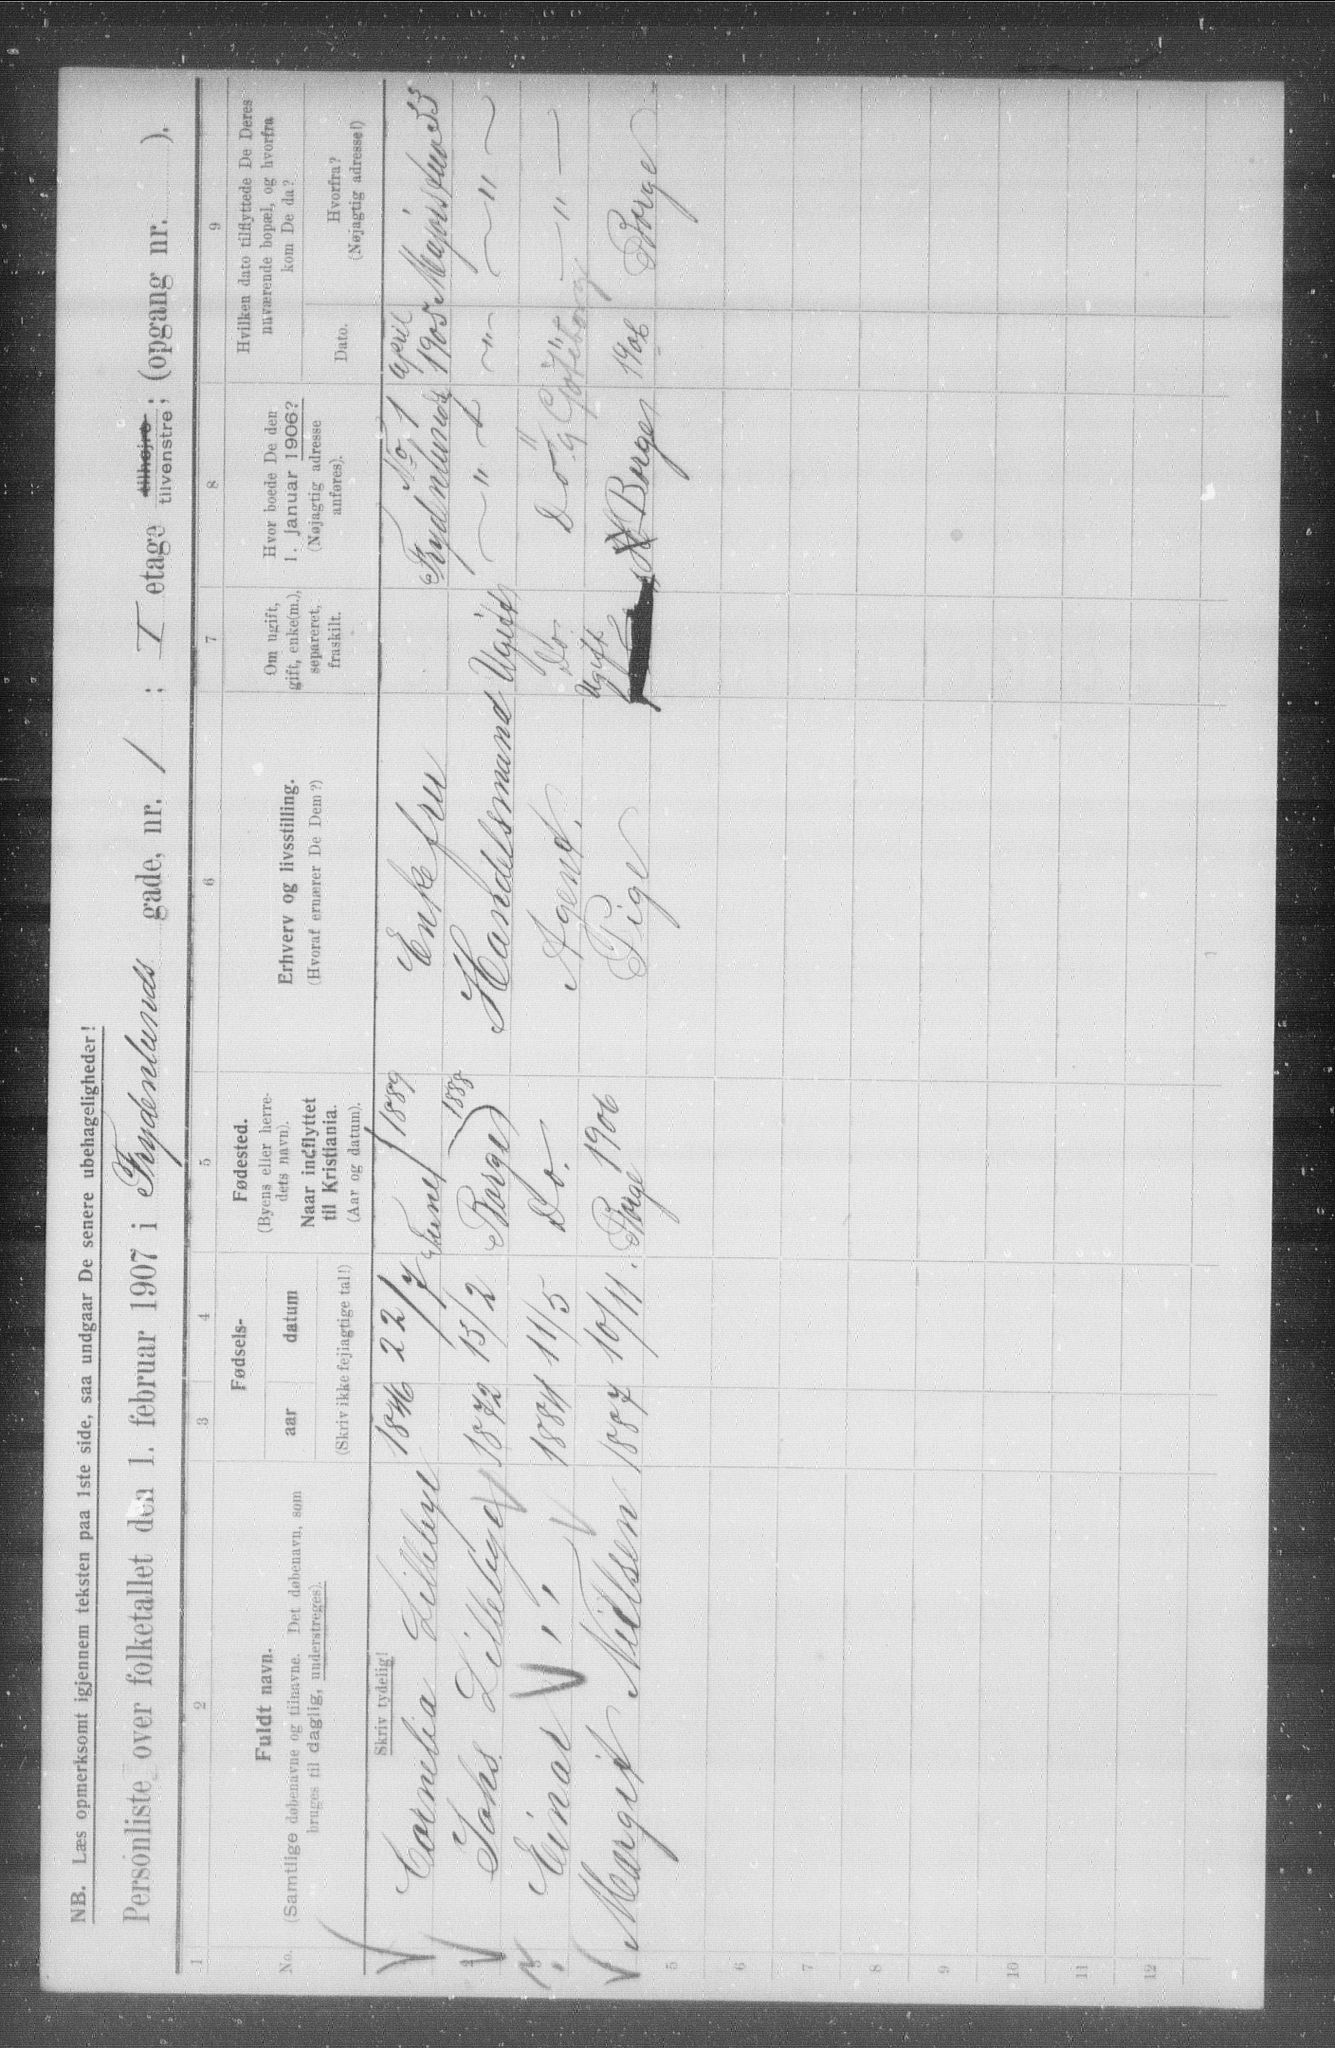 NB. Læs opmerksomt igjennem teksten paa 1ste side, saa undgaar De senere ubehageligheder!
Personliste over folketallet den 1. februar 1907 i Frydenlunds gade, nr. 1 ; I etage tilhøjre ; tilvenstre ; (opgang nr. ).
1 2 3 4 5 6 7 8 9
No.
Fuldt navn.
(Samtlige døbenavne og tilnavne. Det døbenavn, som
bruges til daglig, understreges).
Fødsels-
aar datum
(Skriv ikke fejlagtige tal!)
Fødested.
(Byens eller herre-
dets navn).
Naar indflyttet
til Kristiania.
(Aar og datum).
Erhverv og livsstilling.
(Hvoraf ernærer De Dem?)
Om ugift,
gift, enke(m.),
separeret,
fraskilt.
Hvor boede De den
1. januar 1906?
(Nøjagtig adresse
anføres).
Hvilken dato tilflyttede De Deres
nuværende bopæl, og hvorfra
kom De da?
Dato.
Hvorfra?
(Nøjagtig adresse!)
Skriv tydelig!
Cornelia Lillebye 1846 22/7 Tune 1889 Enkefru Frydenlunds No 1 april 1905
2 Johs. Lillebye 1872 13/2 Borge 1888 Handelsmand Ugift " " "
3 Einar " 1884 11/5 Do. Agent. Do. Do " Göteborg "
Margit Nielsen 1887 10/11. Borge 1906 Pige Ugift Borge 1906 Borge
5
6
7
8
9
10
11
12
1